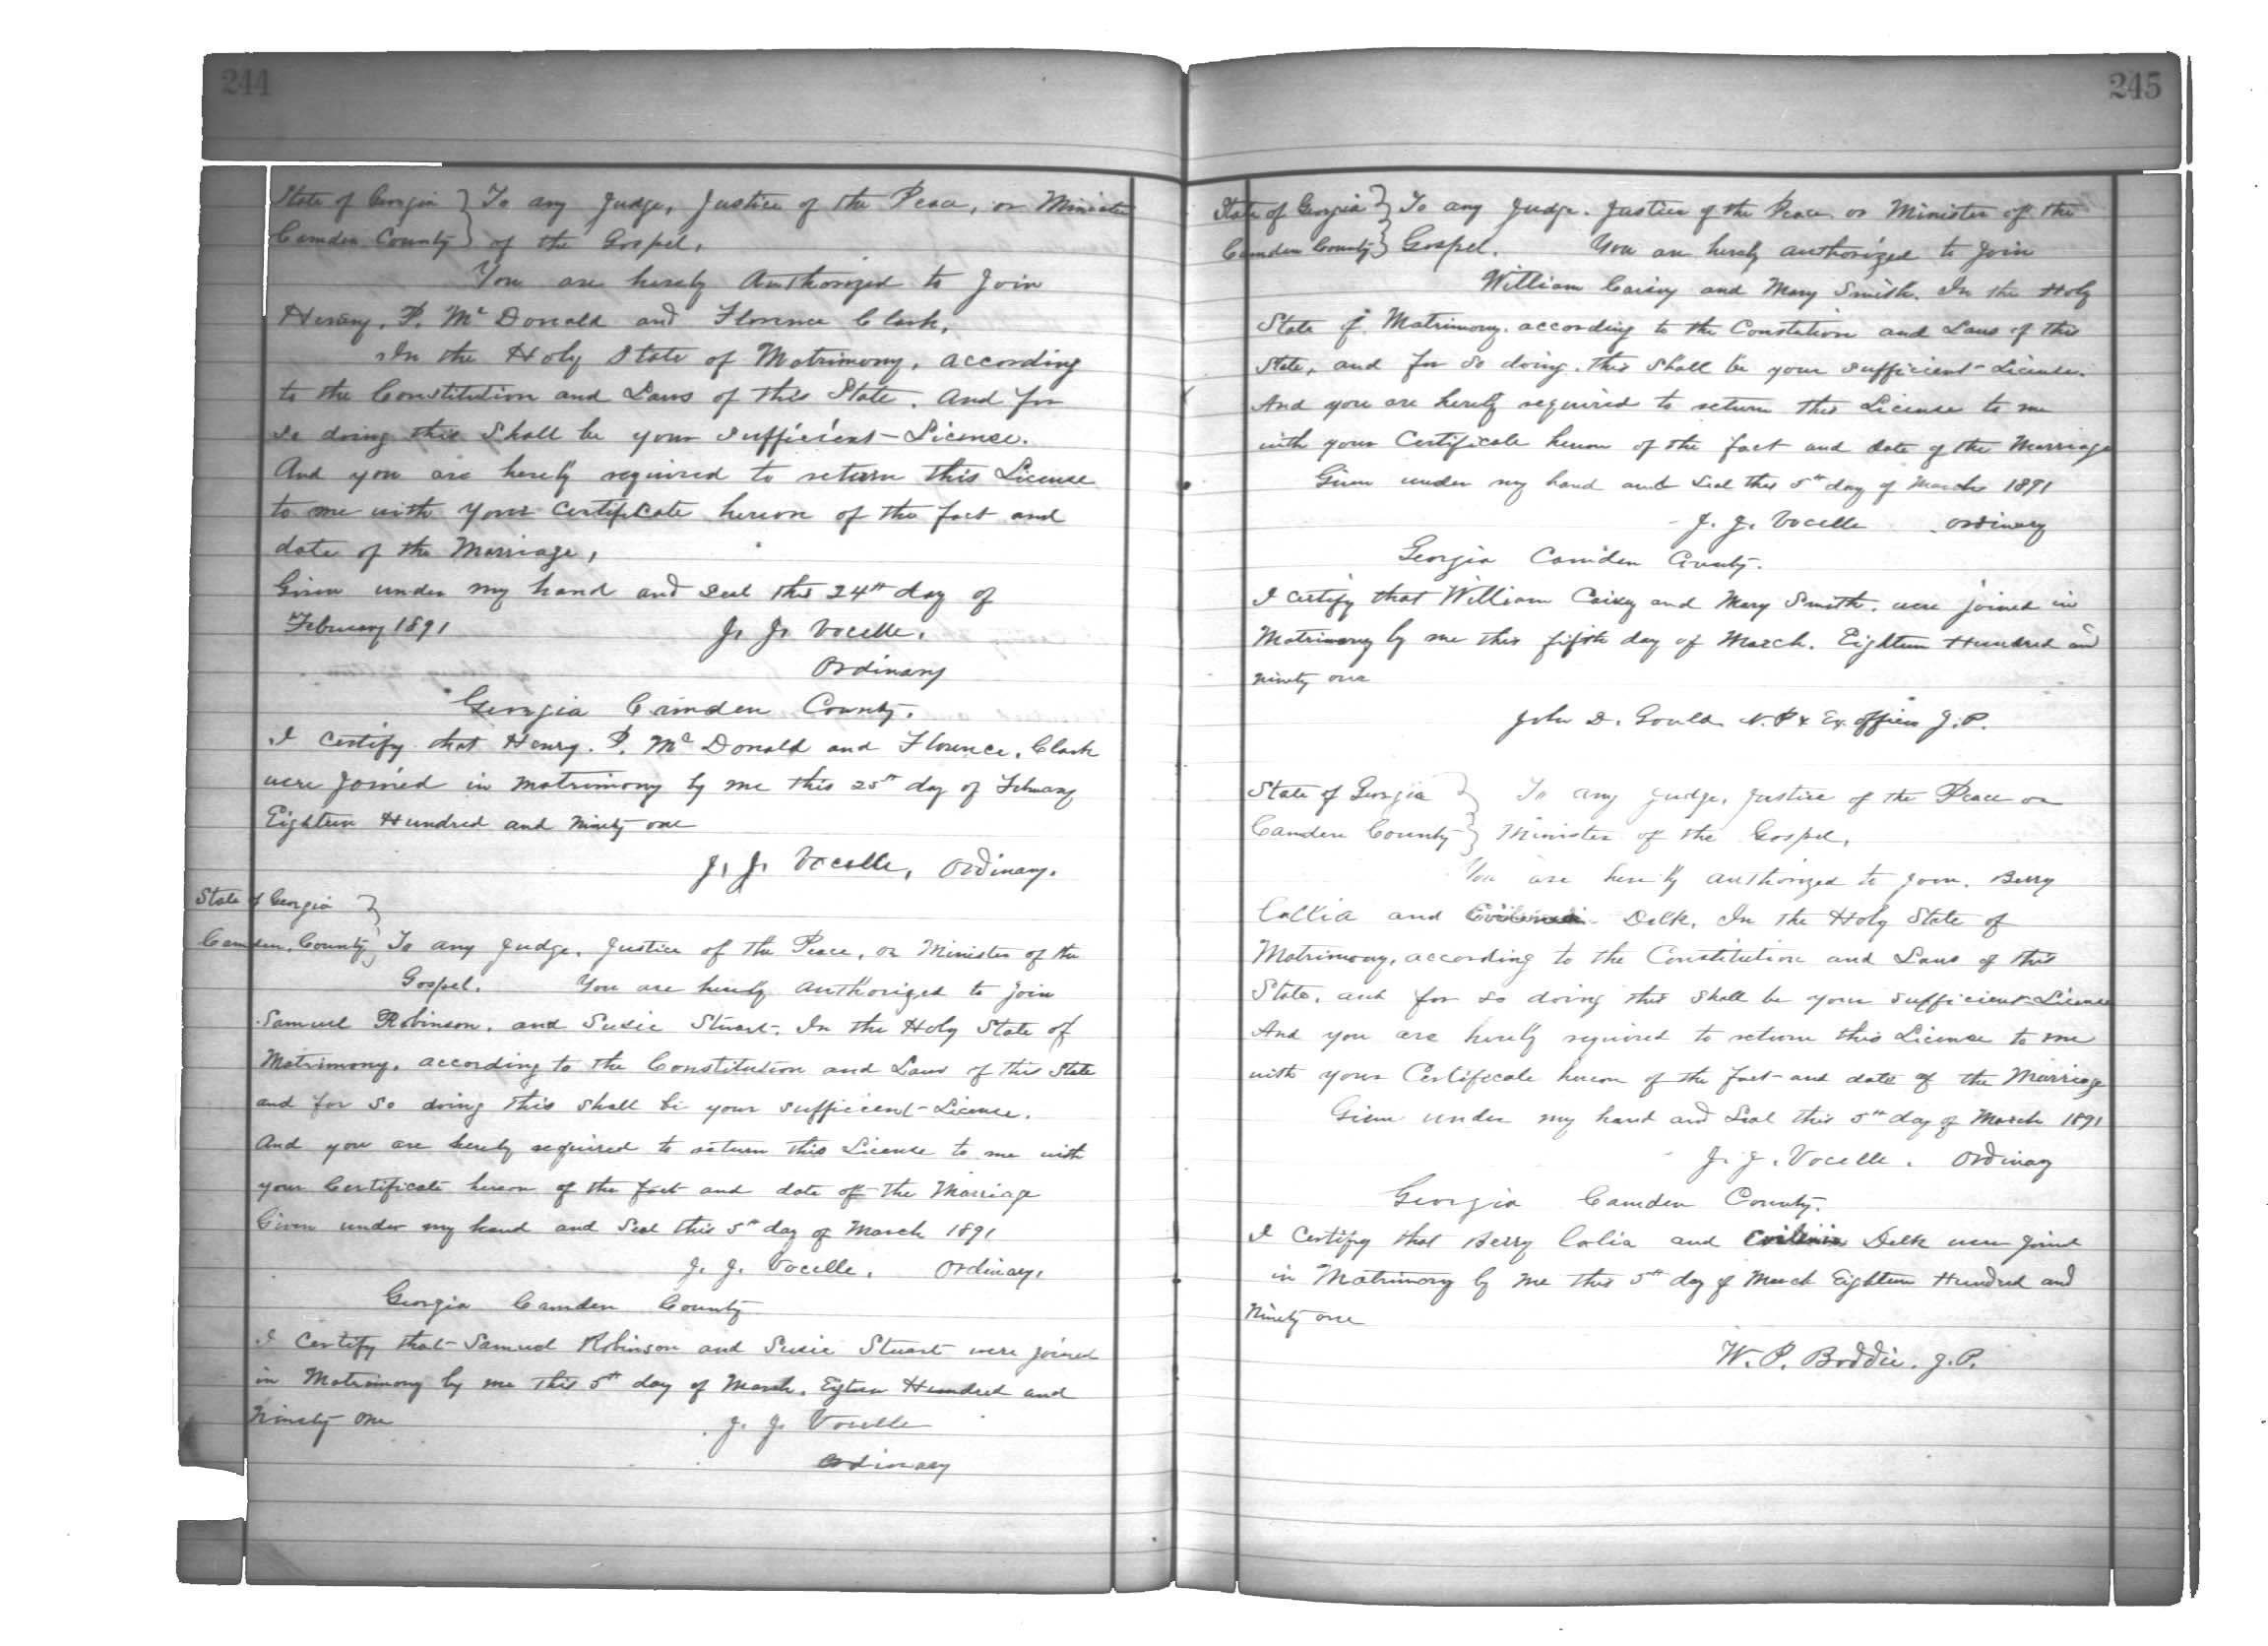 244
State of Georgia } To any Judge, Justice of the Peace, or Minister
Camden County } of the Gospel,
You are hereby Authorized to Join
Henry, P. Mc Donald and Florence Clark,
In the Holy State of Matrimony, according
to the Constitution and Laws of this State. And for
so doing this Shall be your sufficient License.
And you are hereby required to return this License
to me with your Certificate hereon of the fact and
date of the Marriage,
Given under my hand and seal this 24th day of
February 1891 J. J. Vocelle,
Ordinary
Georgia Camden County.
I Certify that Henry. P. Mc Donald and Florence. Clark
were Joined in Matrimony by me this 25th day of February
Eighteen Hundred and Ninety one
J. J. Vocelle, Ordinary.
State of Georgia }
Camden, County } To any Judge, Justice of the Peace, or Minister of the
Gospel. You are hereby authorized to join
Samuel Robinson, and Susie Stuart. In the Holy State of
Matrimony, according to the Constitution and Laws of this State
and for so doing this shall be your sufficient License.
And you are hereby required to return this License to me with
your Certificate hereon of the fact and date of the Marriage
Given under my hand and Seal this 5th day of March 1891
J. J. Vocelle, Ordinary,
Georgia Camden County
I Certify that Samuel Robinson and Susie Stuart were joined
in Matrimony by me this 5th day of March, Eighteen Hundred and
Ninety one J. J. Vocelle
Ordinary
245
State of Georgia } To any Judge. Justice of the Peace or Minister of the
Camden County } Gospel. You are hereby authorized to join
William and Mary Smith. In the Holy
State of Matrimony. according to the Constitution and Laws of this
State, and for so doing. this shall be your sufficient License.
And you are hereby required to return this License to me
with your Certificate hereon of the fact and date of the Marriage
Given under my hand and Seal this 5th day of March 1891
J. J. Vocelle Ordinary
Georgia Camden County.
I certify that William and Mary Smith. were joined in
Matrimony by me this fifth day of March. Eighteen Hundred and
ninety one
John D. Gould N. P & Ex officio J. P.
State of Georgia } To any Judge, Justice of the Peace or
Camden County } Minister of the Gospel,
You are hereby authorized to join. Berry
Collia and Delk, In the Holy State of
Matrimony, according to the Constitution and Laws of this
State, and for so doing this shall be your sufficient License
And you are hereby required to return this License to me
with your Certificate hereon of the fact and date of the Marriage
Given under my hand and Seal this 5th day of March 1891
J. J. Vocelle. Ordinary
Georgia Camden County.
I Certify that Berry Colia and Delk were joined
in Matrimony by me this 5th day of March Eighteen Hundred and
Ninety one
W. P. Boddie. J. P.